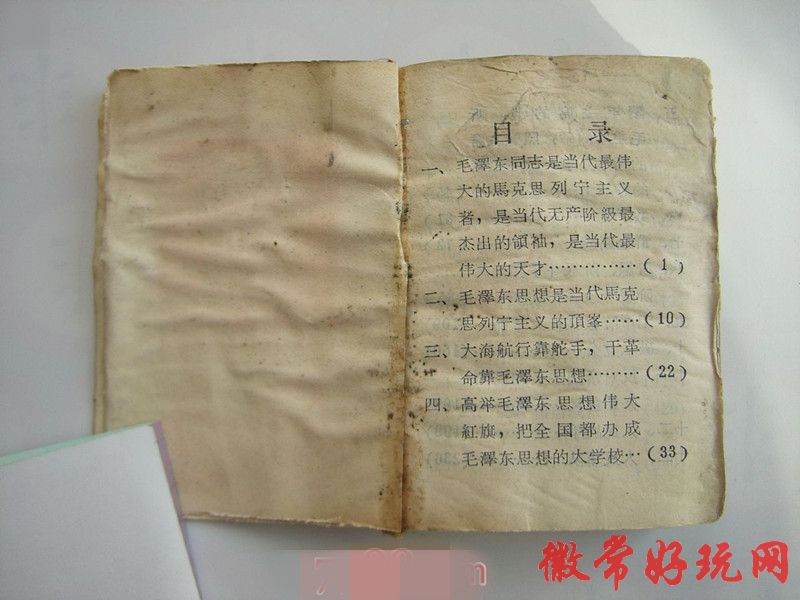 目 录
一、毛澤东同志是当代最伟
大的馬克思列宁主义
者，是当代无产阶級最
杰出的領袖，是当代最
伟大的天才……………(1)
二、毛澤东思想是当代馬克
思列宁主义的頂峯……(10)
三、大海航行靠舵手，干革
命靠毛澤东思想………(22)
四、高举毛澤东思想伟大
紅旗，把全国都办成
毛澤东思想的大学校…(33)
徽常好玩网